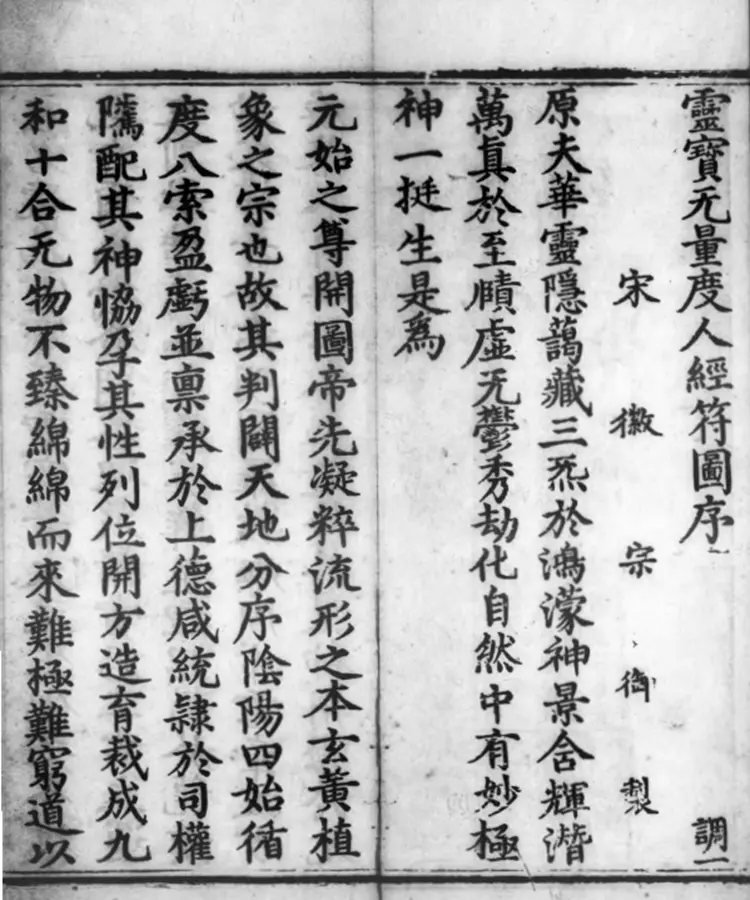 靈寶无量度人經符圖序
調一
宋徽宗御製
原夫華靈隱藹藏三炁於鴻濛神景含輝潛
萬真於至賾虛无鬱秀劫化自然中有妙極
神一挺生是為
元始之尊開圖帝先凝粹流形之本玄黃植
象之宗也故其判闢天地分序陰陽四始循
度八索盈虧並禀承於上德咸統隷於司權
隲配其神恊孕其性列位開方造育裁成九
和十合无物不臻綿綿而來難極難窮道以